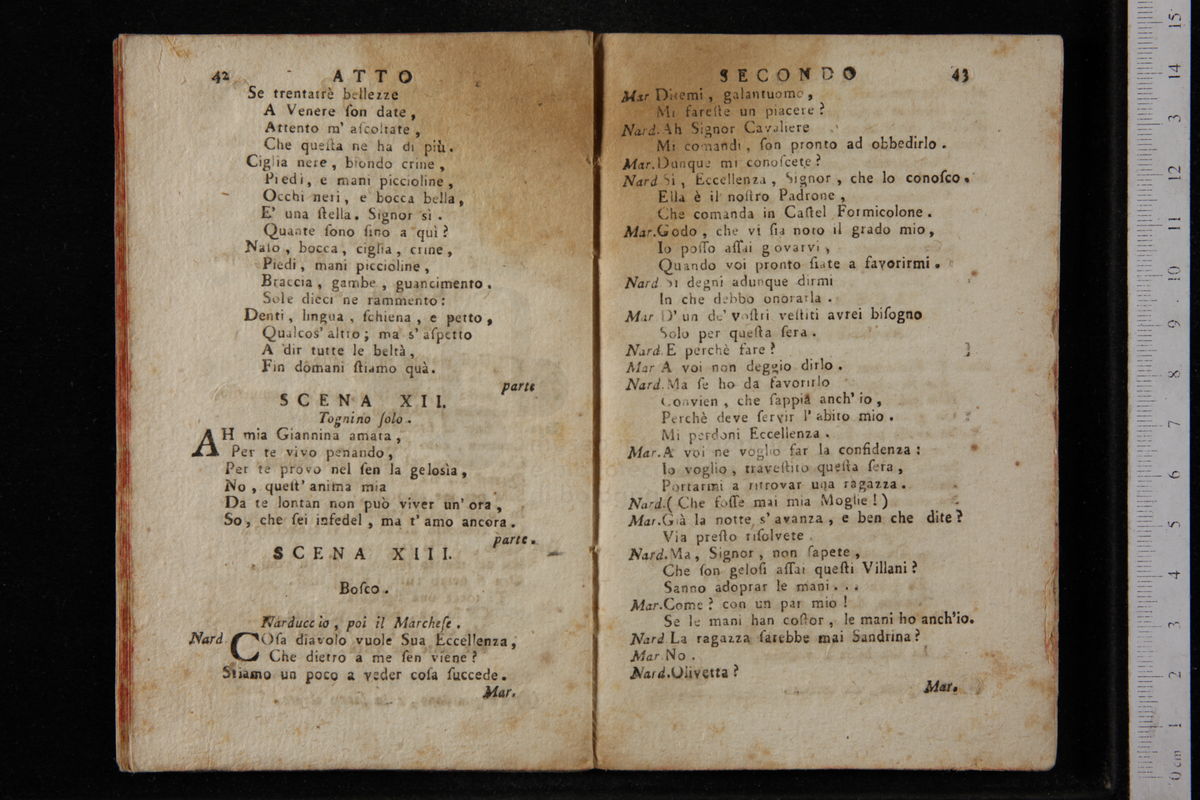 42 ATTO
Se trentatrè bellezze
A Venere ſon date,
Attento m' aſcoltate,
Che queſta ne ha di più.
Ciglia nere, biondo crine,
Piedi, e mani piccioline,
Occhi neri, e bocca bella,
E' una ſtella. Signor sì.
Quante ſono ſino a quì?
Naſo, bocca, ciglia, crine,
Piedi, mani piccioline,
Braccia, gambe, guancimento.
Sole dieci ne rammento:
Denti, lingua, ſchiena, e petto,
Qualcos' altro; ma s' aſpetto
A dir tutte le beltà,
Fin domani ſtiamo quà.
parte
SCENA XII.
Tognino ſolo.
AH mia Giannina amata,
Per te vivo penando,
Per te provo nel ſen la gelosìa,
No, queſt' anima mia
Da te lontan non può viver un' ora,
So, che ſei infedel, ma t' amo ancora.
parte.
SCENA XIII.
Boſco.
Narduccio, poi il Marcheſe.
Nard COſa diavolo vuole Sua Eccellenza,
Che dietro a me ſen viene?
Stiamo un poco a veder coſa ſuccede.
Mar.
SECONDO 43
Mar Ditemi, galantuomo,
Mi fareſte un piacere?
Nard. Ah Signor Cavaliere
Mi comandi, ſon pronto ad obbedirlo.
Mar. Dunque mi conoſcete?
Nard. Sì, Eccellenza, Signor, che lo conoſco.
Ella è il noſtro Padrone,
Che comanda in Caſtel Formicolone.
Mar. Godo, che vi ſia noto il grado mio,
Io poſſo aſſai giovarvi,
Quando voi pronto ſiate a favorirmi.
Nard Si degni adunque dirmi
In che debbo onorarla.
Mar D' un de' voſtri veſtiti avrei biſogno
Solo per queſta ſera.
Nard. E perchè fare?
Mar A voi non deggio dirlo.
Nard. Ma ſe ho da favorirlo
Convien, che ſappia anch' io,
Perchè deve ſervir l' abito mio.
Mi perdoni Eccellenza.
Mar. A voi ne voglio far la confidenza:
Io voglio, traveſtito queſta ſera,
Portarmi a ritrovar una ragazza.
Nard. (Che foſſe mai mia Moglie!)
Mar. Già la notte s' avanza, e ben che dite?
Via preſto riſolvete.
Nard. Ma, Signor, non ſapete,
Che ſon geloſi aſſai queſti Villani?
Sanno adoprar le mani...
Mar. Come? con un par mio!
Se le mani han coſtor, le mani ho anch'io.
Nard La ragazza ſarebbe mai Sandrina?
Mar No.
Nard. Olivetta?
Mar.
0 cm 1 2 3 4 5 6 7 8 9 10 11 12 13 14 15